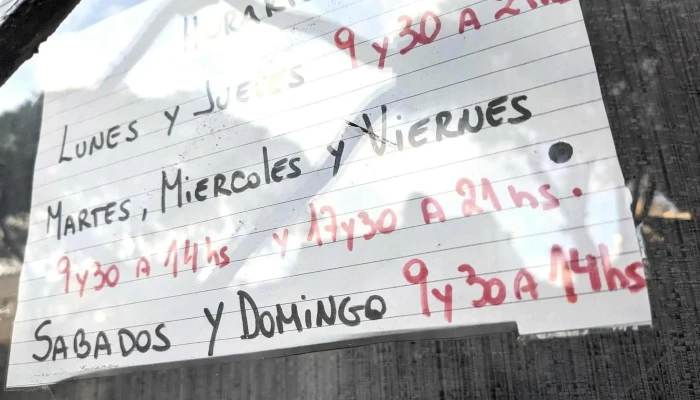 LUNES Y JUEVES 9 y 30 A
MARTES, MIERCOLES Y VIERNES
9 y 30 A 14 hs y 17 y 30 A 21 hs.
SABADOS Y DOMINGO 9 y 30 A 14 hs